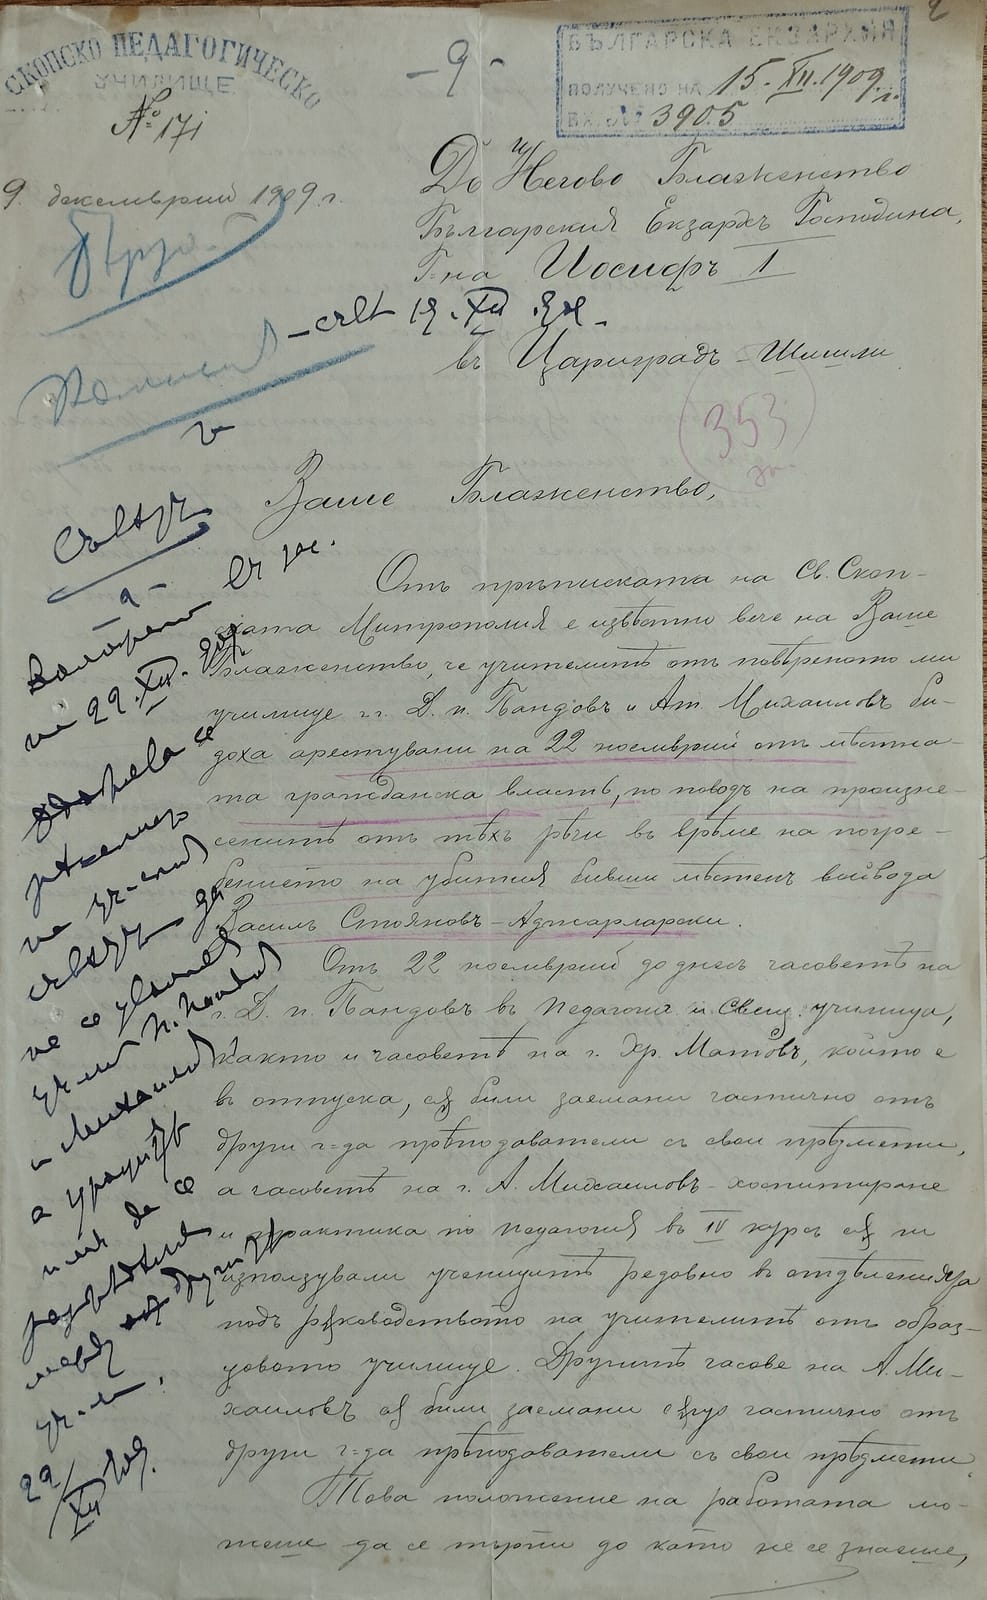 СКОПСКО ПЕДАГОГИЧЕСКО
УЧИЛИЩЕ
№ 171
9 декемврий 1909 г.
– 9 –
2
БЪЛГАРСКА ЕКЗАРХИЯ
ПОЛУЧЕНО НА 15. XII. 1909 г.
ВХ. № 3905
До Негово Блаженство
Българския Екзархъ Господина,
Г-на Иосифъ I
въ Цариградъ – Шишли
353
Ваше Блаженство,
Отъ прѣписката на Св. Скоп-
ската Митрополия е извѣстно вече на Ваше
Блаженство, че учителитѣ отъ повѣреното ми
училище г.г. Д. п. Бандовъ и Ат. Михаиловъ би-
доха арестувани на 22 ноемврий отъ мѣстна-
та гражданска власть, по поводъ на произне-
сенитѣ отъ тѣхъ рѣчи въ врѣме на погре-
бението на убития бивши мѣстенъ войвода
Василъ Стояновъ – Аджарларски.
Отъ 22 ноемврий до днесъ часоветѣ на
г. Д. п. Бандовъ въ Педагогич. и Свещ. училища,
както и часоветѣ на г. Хр. Матовъ, който е
въ отпуска, сѫ били заемани частично отъ
други г-да прѣподаватели съ свои прѣдмети,
а часоветѣ на г. А. Михаиловъ – хоспитиране
и практика по Педагогия въ IV курсъ сѫ ги
използували ученицитѣ редовно въ отдѣленията
подъ рѫководството на учителитѣ отъ образ-
цовото училище. Другитѣ часове на А. Ми-
хаиловъ сѫ били заемани сѫщо частично отъ
други г-да прѣподаватели съ свои прѣдмети.
Това положение на работата мо-
теше да се търпи до като не се знаеше,
Съветъ
въ зас.
на 22. XII. 909
на уч-лия
съветъ да
не се
уч-ли п. Бандов
и Михаилов
а
им да се
разпрѣделят
между другитѣ
уч-ли.
22/XII 909.